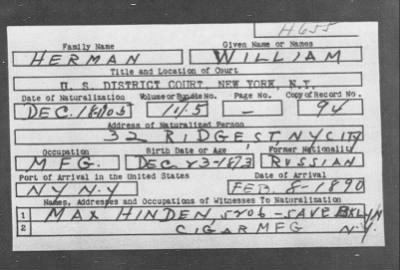 H655
Family Name Given Name or Names
HERMAN WILLIAM
Title and Location of Court
U. S. DISTRICT COURT, NEW YORK, N.Y.
Date of Naturalization Volume or Bundle No. Page No. Copy of Record No.
DEC. 1915 - 94
Address of Naturalized Person
32 RIDGE ST NY CITY
Occupation Birth Date or Age Former Nationality
MFG. DEC 23-1873 RUSSIAN
Port of Arrival in the United States Date of Arrival
NY N.Y FEB. 8-1890
Names, Addresses and Occupations of Witnesses To Naturalization
1 MAX HINDEN, 5206 - SAVE BKLYN
2 CIGAR MFG N.Y.